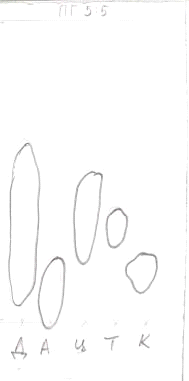 ПГ 5:5
Д А Ц Т К